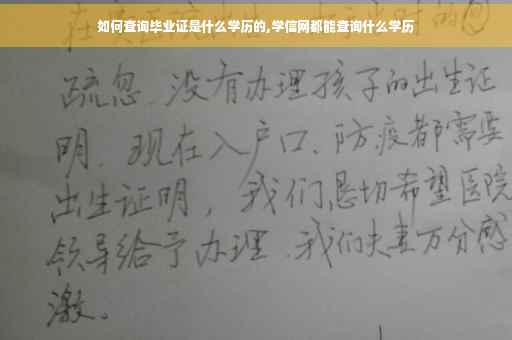 如何查询毕业证是什么学历的,学信网都能查询什么学历
疏忽、没有办理孩子的出生证
明、现在入户口、防疫都需要
出生证明，我们恳切希望医院
领导给予办理、我们夫妻万分感
激。